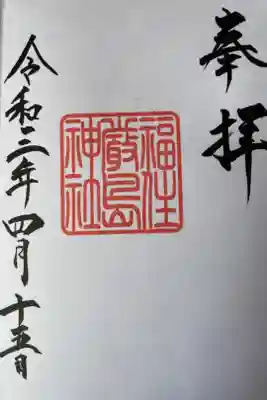 奉拝
福住
嚴島
神社
令和三年四月十五日